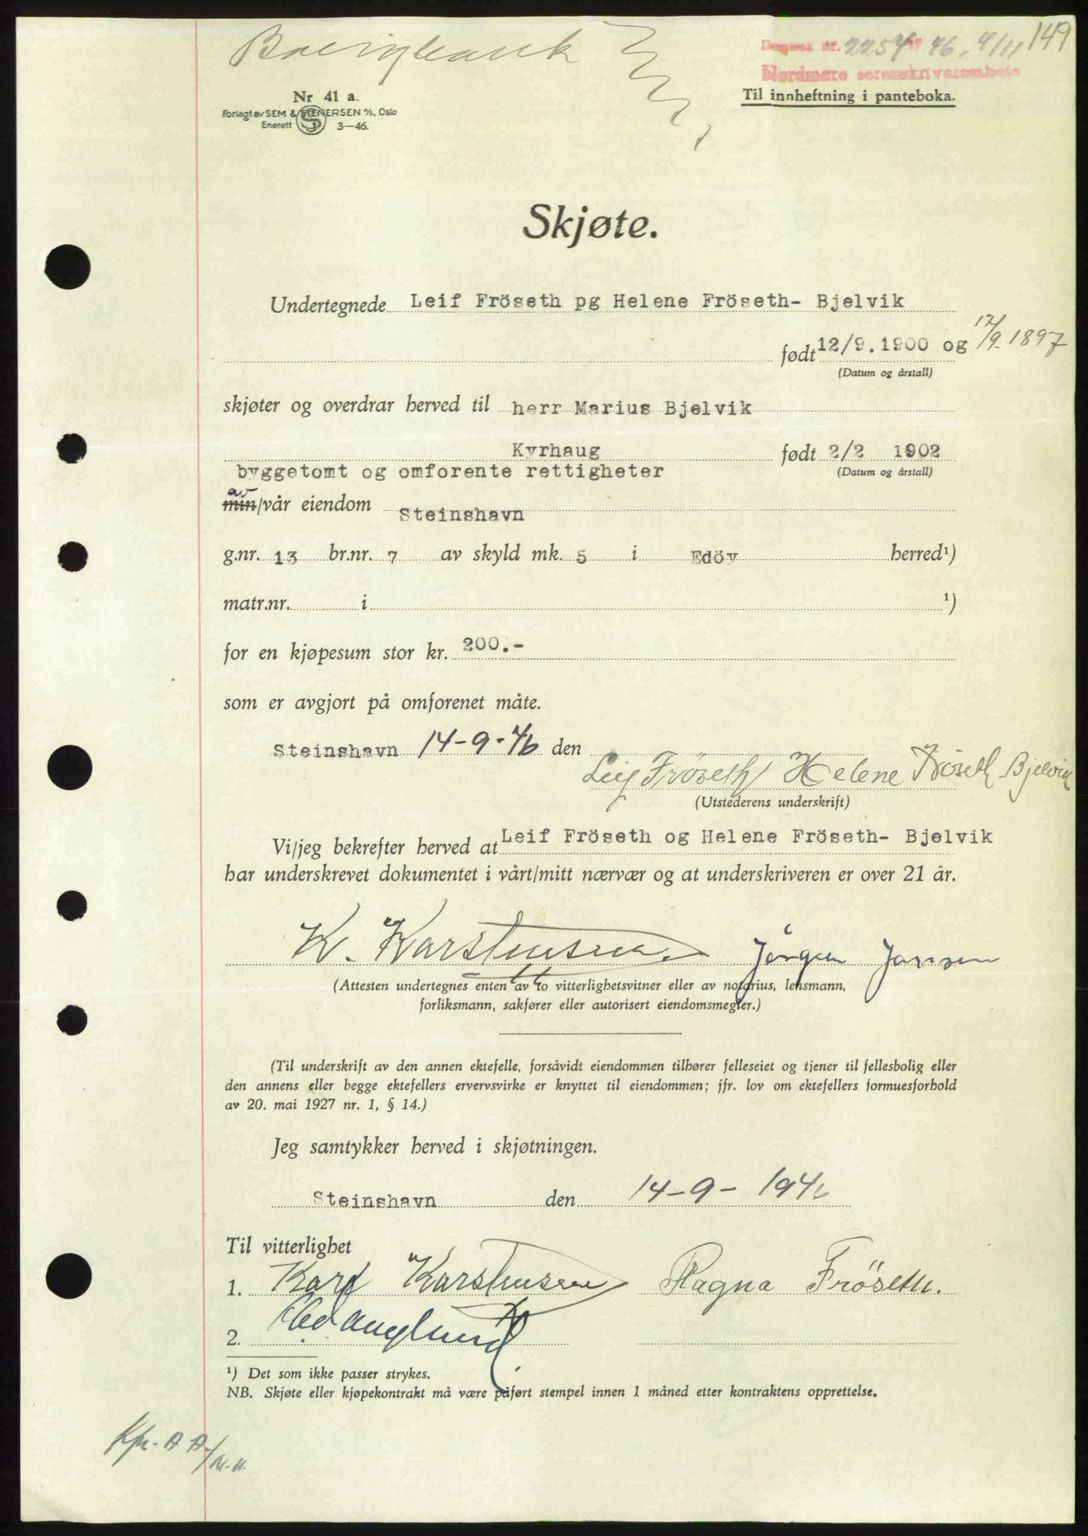 149
Dagbok nr. 2254 1946, 4/11
Nordmøre sorenskriverembete
Nr 41 a.
Til innheftning i panteboka.
Forlagt av SEM & STENERSEN A/S, Oslo
Enerett 3—46.
Skjøte.
Undertegnede Leif Fröseth pg Helene Fröseth- Bjelvik
født 12/9.1900 og 17/9.1897
(Datum og årstall)
skjøter og overdrar herved til herr Marius Bjelvik
Kyrhaug født 2/2 1902
byggetomt og omforente rettigheter (Datum og årstall)
av
min/vår eiendom Steinshavn
g.nr. 13 br.nr. 7 av skyld mk. 5 i Edöy herred¹)
matr.nr. i ¹)
for en kjøpesum stor kr. 200.-
som er avgjort på omforenet måte.
Steinshavn 14-9-46 den
Leif Fröseth Helene Fröseth Bjelvik
(Utstederens underskrift)
Vi/jeg bekrefter herved at Leif Fröseth og Helene Fröseth- Bjelvik
har underskrevet dokumentet i vårt/mitt nærvær og at underskriveren er over 21 år.
K. Karstensen. Jörgen Jansen
(Attesten undertegnes enten av to vitterlighetsvitner eller av notarius, lensmann,
forliksmann, sakfører eller autorisert eiendomsmegler.)
(Til underskrift av den annen ektefelle, forsåvidt eiendommen tilhører felleseiet og tjener til fellesbolig eller
den annens eller begge ektefellers ervervsvirke er knyttet til eiendommen; jfr. lov om ektefellers formuesforhold
av 20. mai 1927 nr. 1, § 14.)
Jeg samtykker herved i skjøtningen.
Steinshavn den 14-9-1946
Til vitterlighet
1. Karl Karstensen Ragna Fröseth.
2.
¹) Det som ikke passer strykes.
NB. Skjøte eller kjøpekontrakt må være påført stempel innen 1 måned etter kontraktens opprettelse.